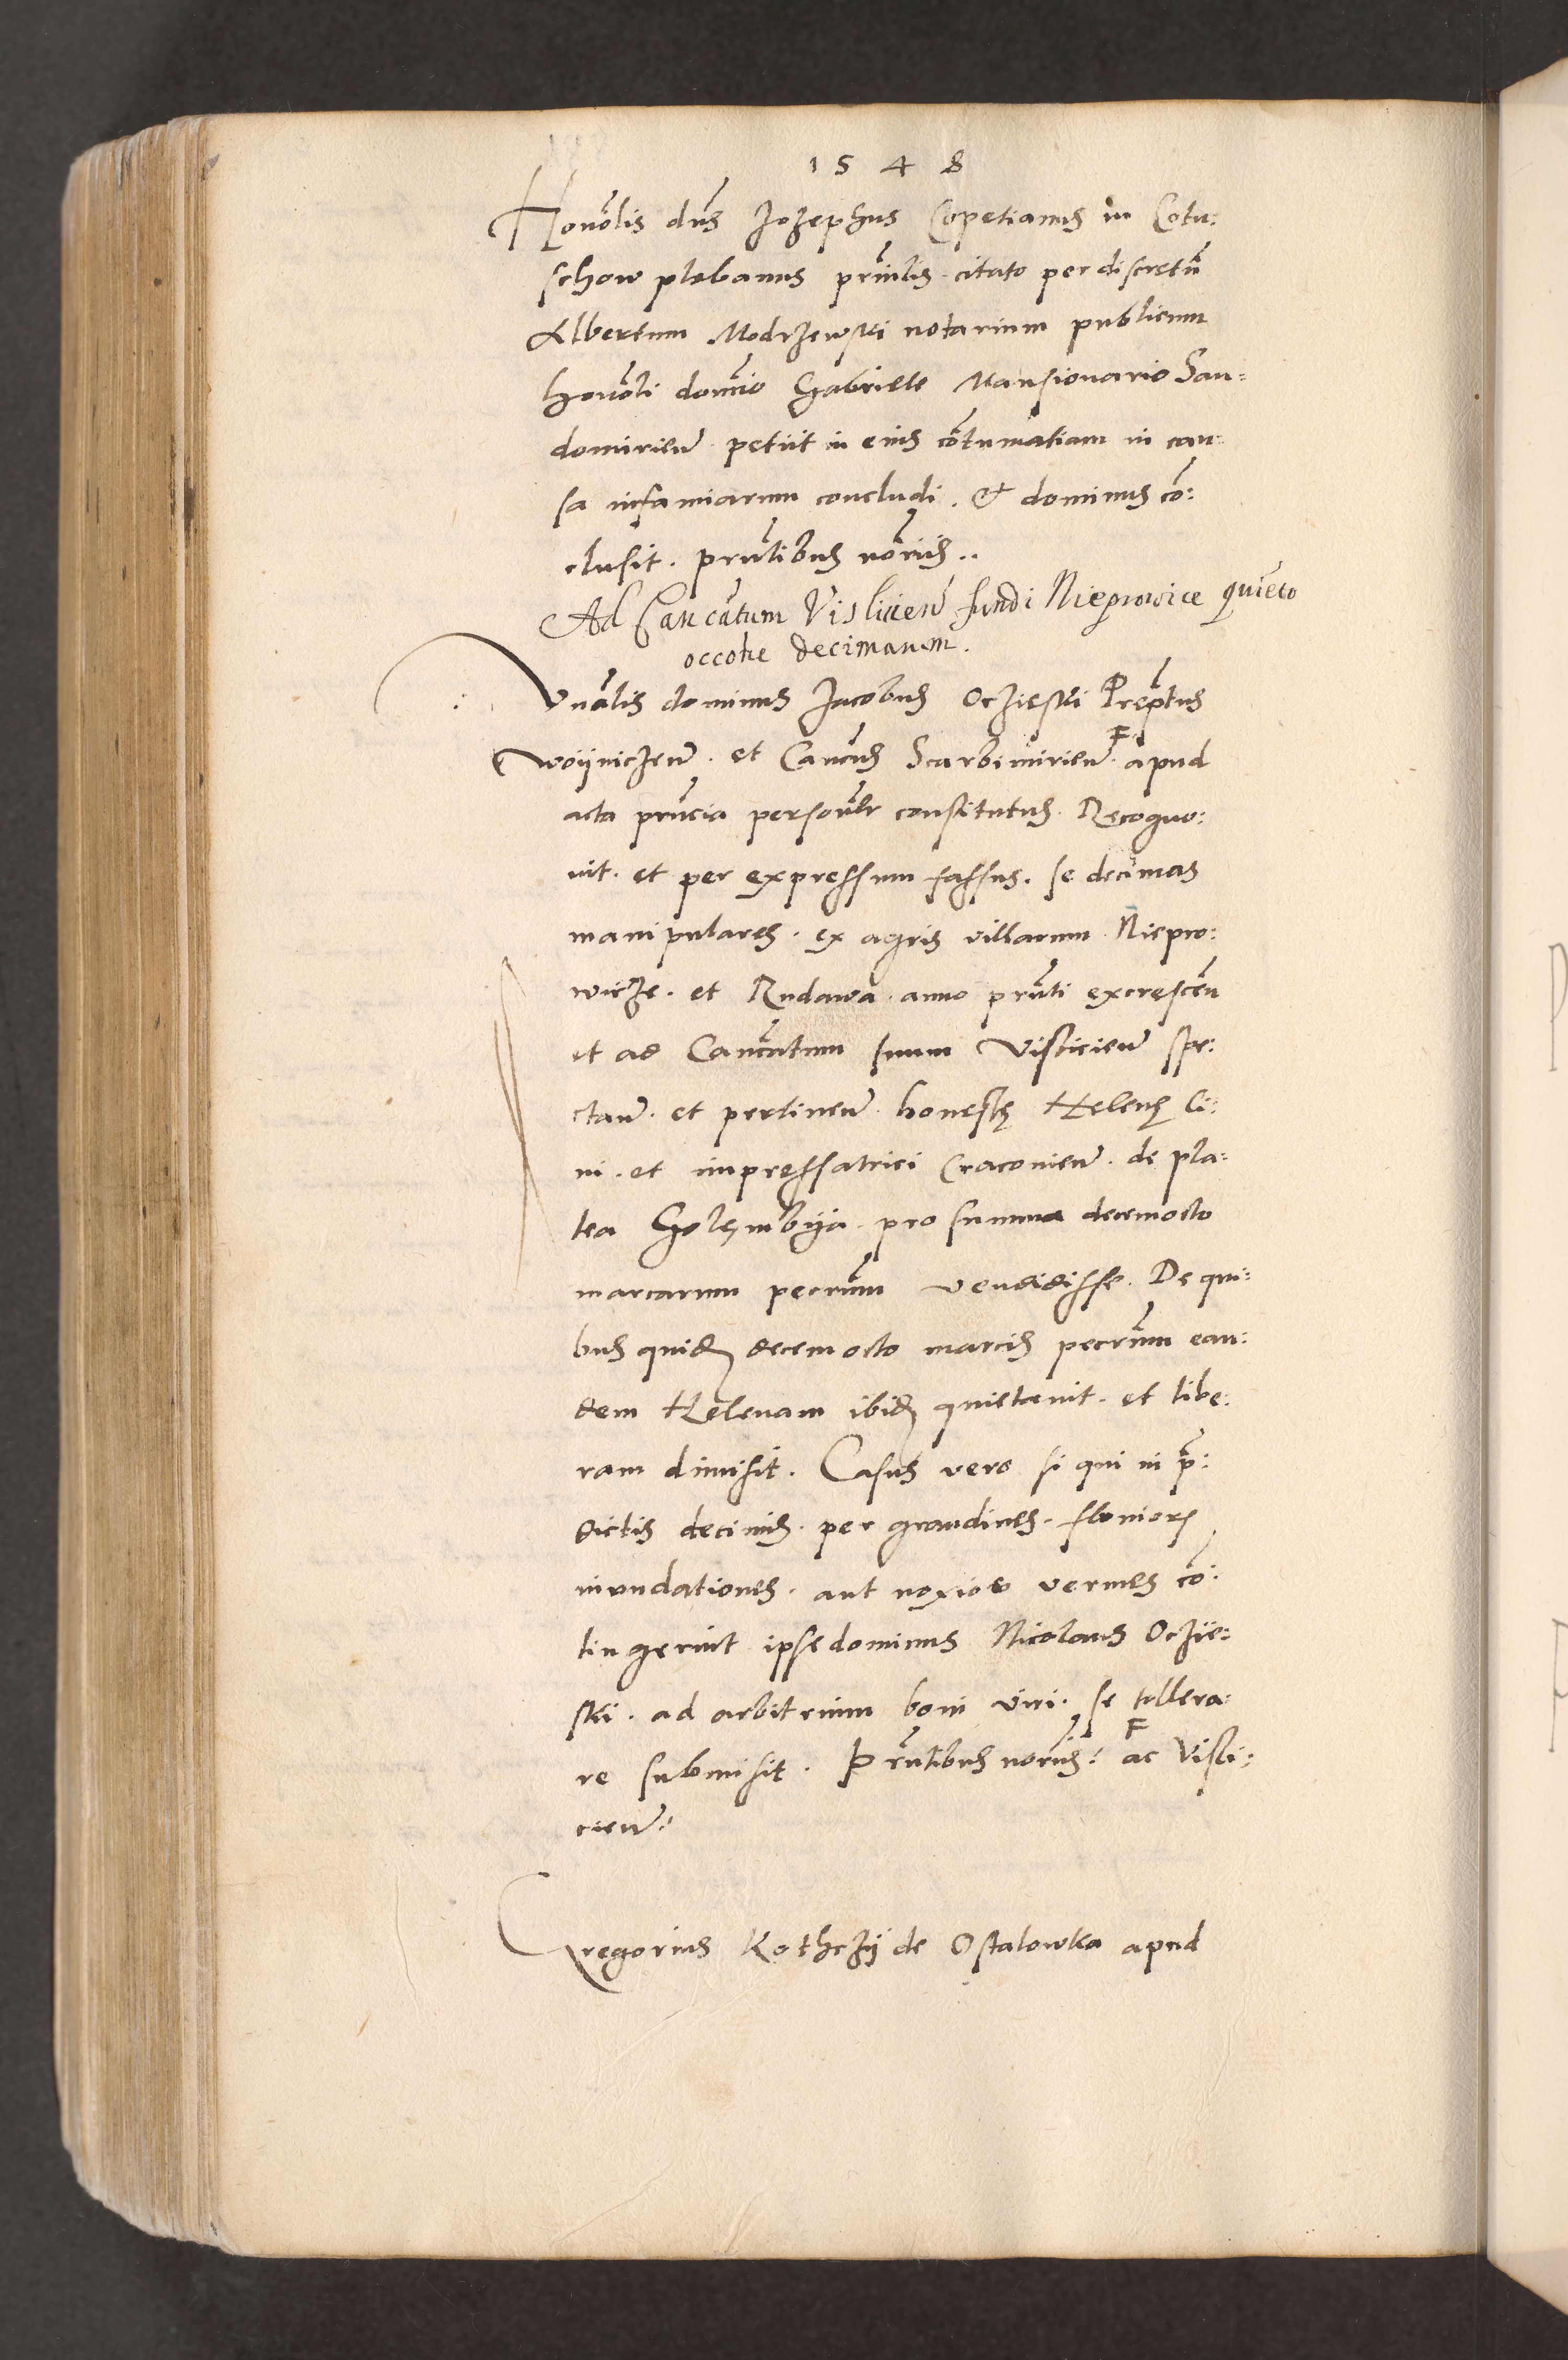 1548
Honōlis dns Jozephus Copetianus in Cotu:
schow plebanus prīnlis citato per discretū
Albertum Modrzewski notarium publicum
honōli domīo Gabriele Mansionario San:
domirien petiit in eius cōtumatiam in cau:
sa infamiarum concludi. et dominus cō:
clusit. prntibus noriis..
Ad Cancatum Vislicien fundi Nieprowice
decimarum.
Vnālis dominus Jacobus Oczieski Prepōtus
woijniczien. et Cancus Scarbimirien apud
acta prncia persōnlr constitutus. Recogno:
uit. et per expressum fassus. se decimas
manipulares. ex agris villarum Niepro:
wicze. et Rudawa anno prnti excrescen
et ad Cancatum suum Vislicien spe:
ctan. et pertinen. honestę Helenę Ci:
ui. et impressatrici Cracouien. de pla:
tea Golęmbija. pro summa decemocto
marcarum pecrum vendidisse. De qui:
bus quidē decemocto marcis pecrum ean:
dem Helenam ibidē quietauit. et libe:
ram dimisit. Casus vero si qui in p̄:
dictis decimis. per grandines. fluuiorū
inundationes. aut noxios vermes cō:
tingerint ipse dominus Nicolaus Oczie:
ski. ad arbitrium boni viri. se tollera:
re submisit. Prntibus noriis: ac Visli:
cien:
Gregorius Kothczij de Ostalowka apud